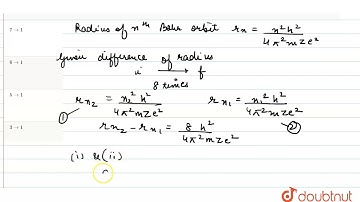 7 → 1
Radius of nth Bohr orbit rn = n²h² / 4π²mZe²
6 → 1
Given difference of radius
i → f
8 times
5 → 1
① rn₂ = n₂²h² / 4π²mZe² rn₁ = n₁²h² / 4π²mZe²
3 → 1
rn₂ − rn₁ = 8h² / 4π²mZe² ②
(i) & (ii)
doubtnut